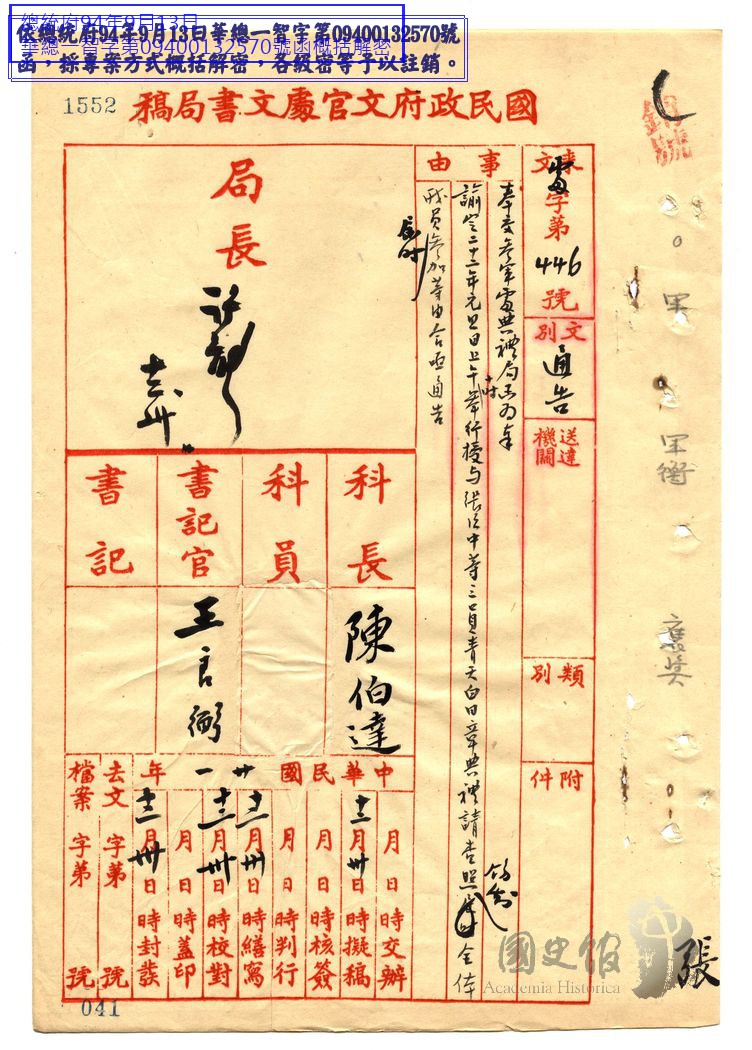 總統府94年9月13日
華總一智字第09400132570號函概括解密
依總統府94年9月13日華總一智字第09400132570號
函，採專案方式概括解密，各級密等予以註銷。
1552
國民政府文官處文書局稿
來文
字第
446
號
文別
通告
送達機關
類別
附件
事由
奉交參軍處典禮局函為奉
諭定二十二年元旦日上午十時舉行授與張
中等三員青天白日章典禮請查照
全体
職員參加等由合亟通告
局長
科長
陳伯達
科員
書記官
王
書記
中華民國廿一年
月日時交辦
十二月卅日時擬稿
月日時核簽
月日時判行
十二月卅日時繕寫
十二月卅日時校對
月日時蓋印
十二月卅日時封發
去文字第號
檔案字第號
041
國史館
Academia Historica
張
褒奖